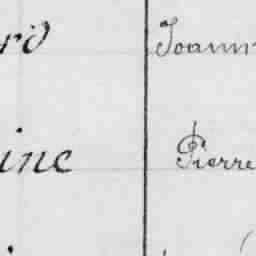 rd Joann
ine Pierre